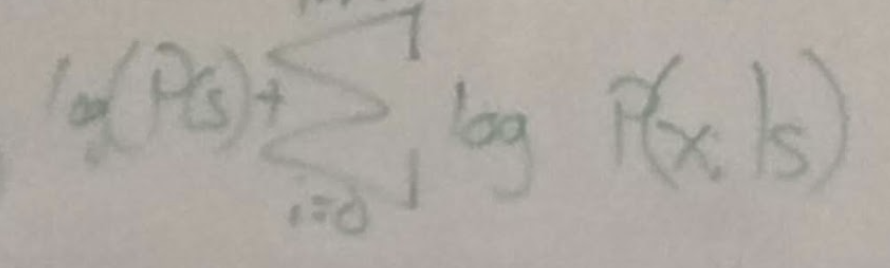 log(P(s) + ∑ i=0 log P(xᵢ|s)